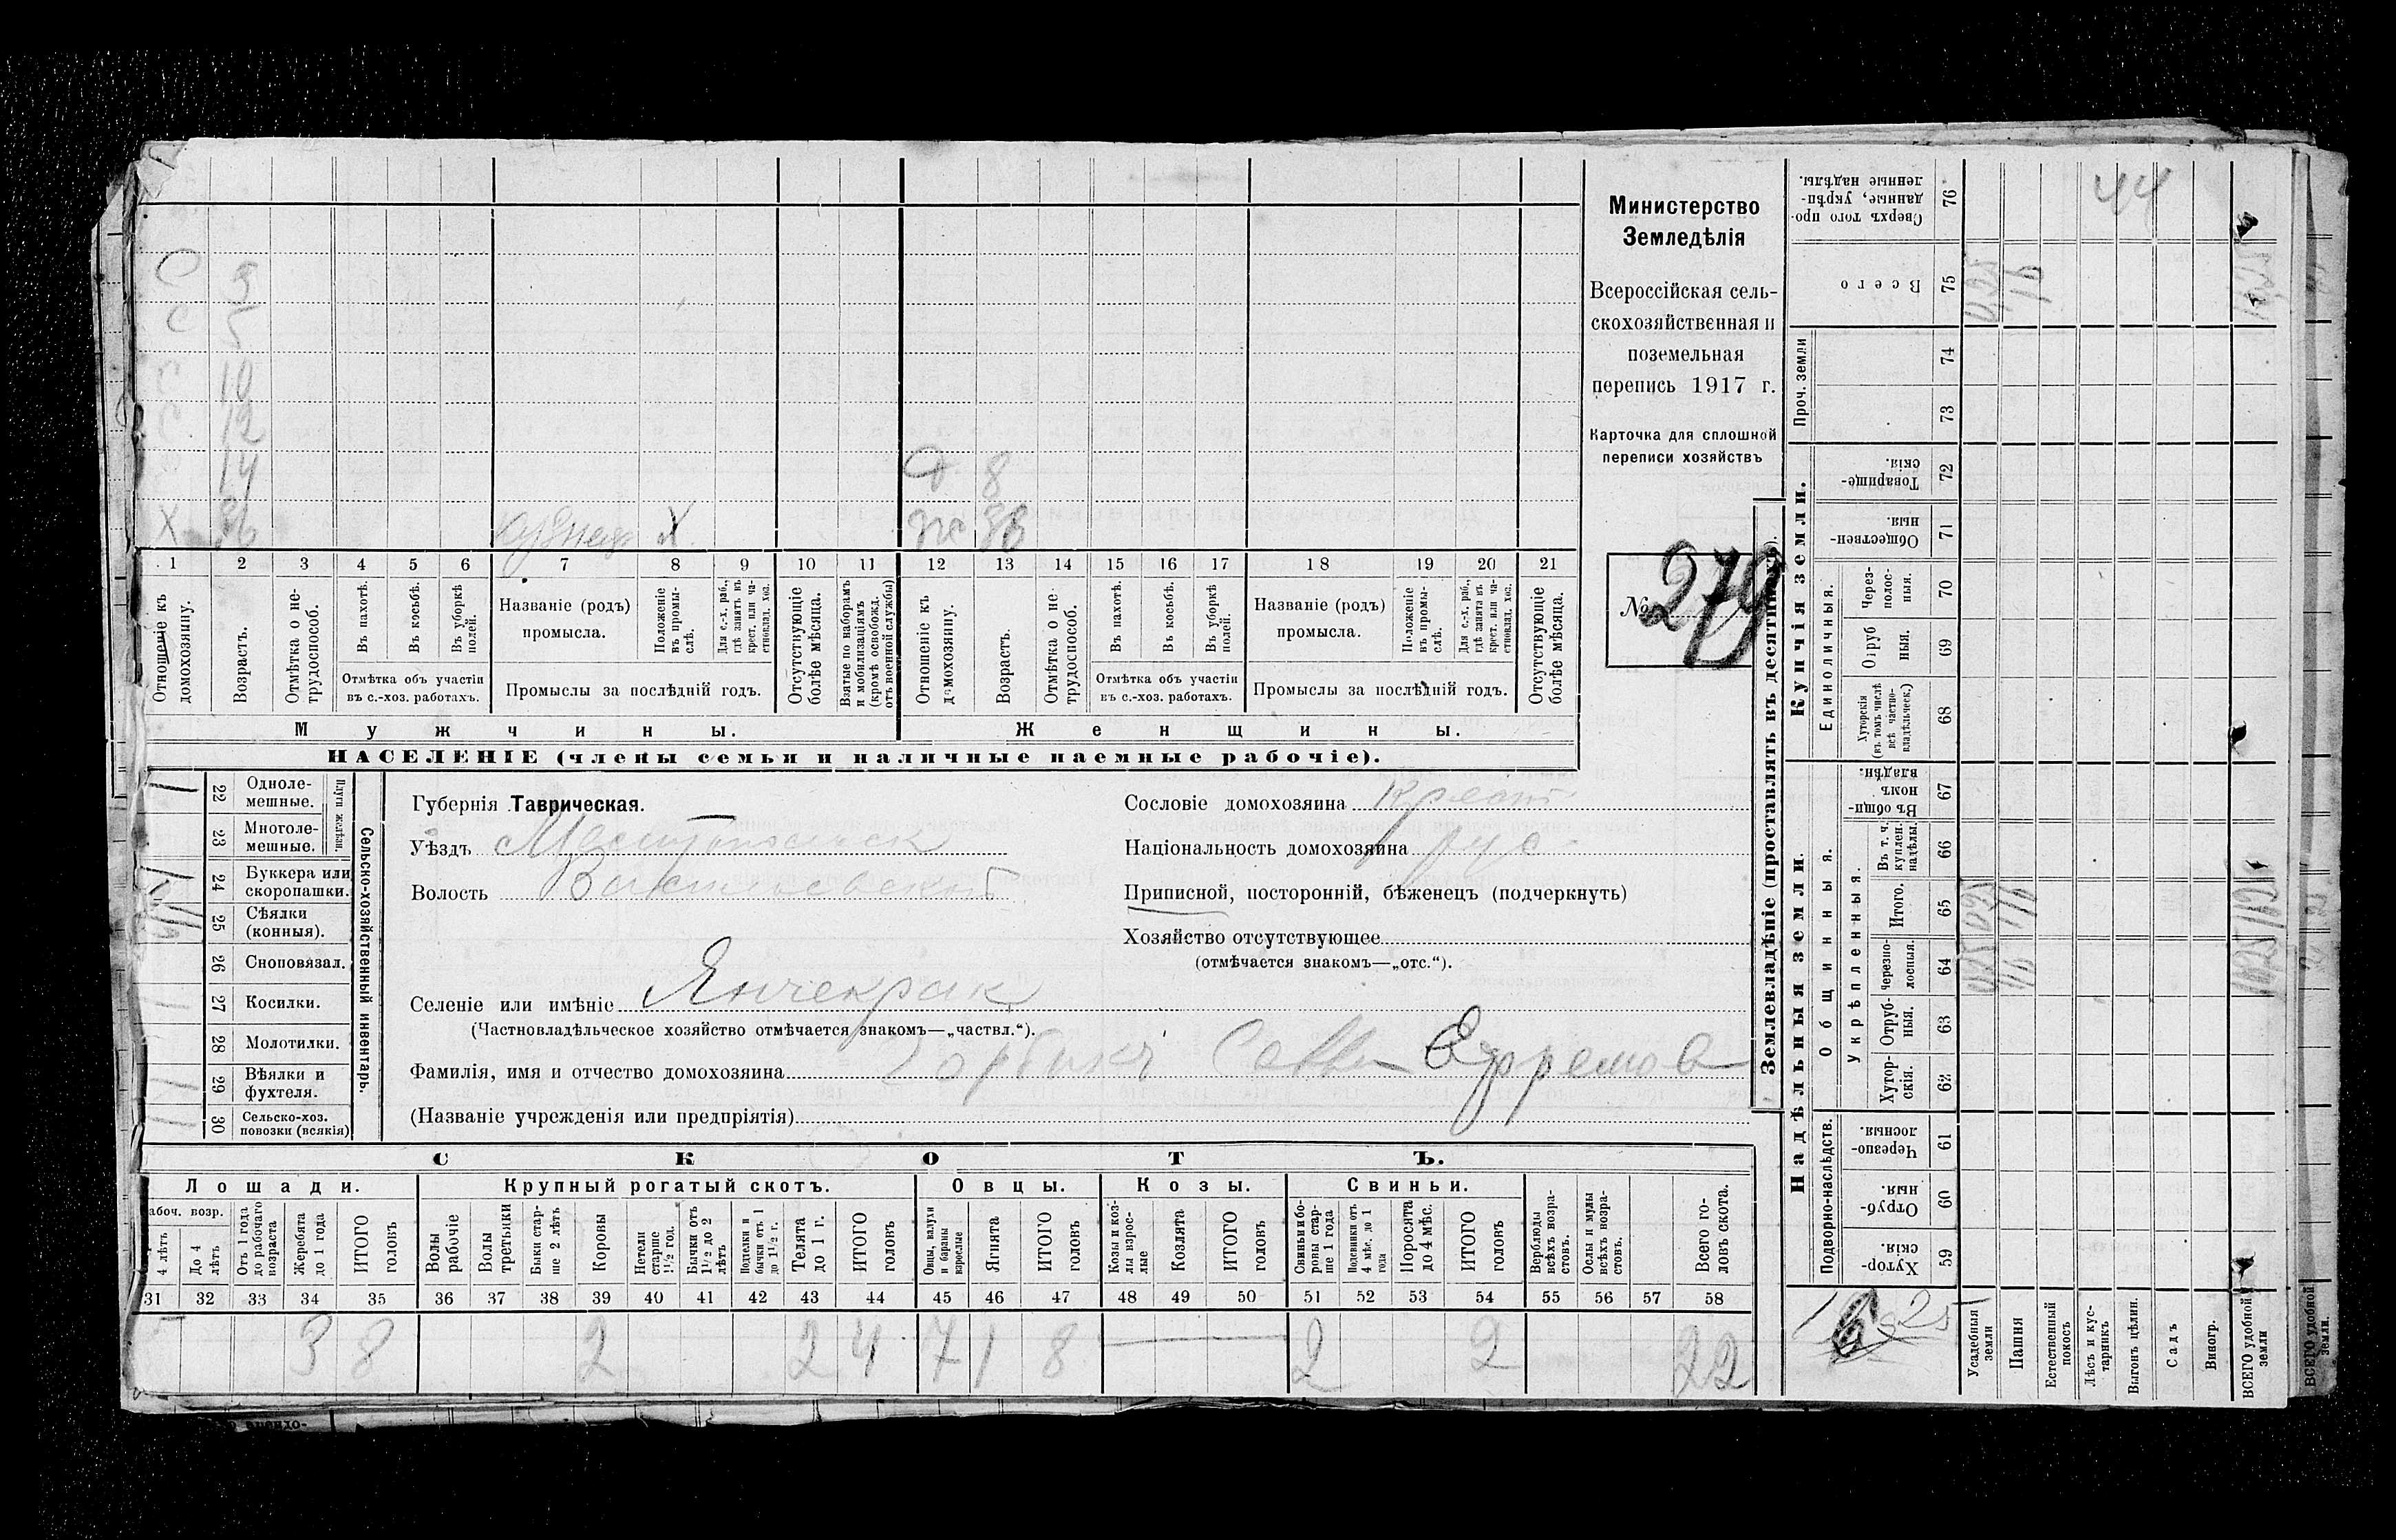 С 3
С 5
С 10
С 12
14
Х 36 Х ж 36
8
1 2 3 4 5 6 7 8 9 10 11 12 13 14 15 16 17 18 19 20 21
Отношеніе къ домохозяину.
Возрастъ.
Отмѣтка о не-трудоспособ.
Въ пахотѣ.
Въ косьбѣ.
Въ уборкѣ полей.
Отмѣтка объ участіи
въ с.-хоз. работахъ.
Названіе (родъ)
промысла.
Положеніе въ промы-слѣ.
Для с.-х. раб., гдѣ занятъ въ крест. или ча-стновлад. хоз.
Промыслы за послѣдній годъ.
Отсутствующіе болѣе мѣсяца.
Взятые по наборамъ и мобилизаціямъ (кромѣ освобожд. отъ военной службы)
Отношеніе къ домохозяину.
Возрастъ.
Отмѣтка о не-трудоспособ.
Въ пахотѣ.
Въ косьбѣ.
Въ уборкѣ полей.
Отмѣтка объ участіи
въ с.-хоз. работахъ.
Названіе (родъ)
промысла.
Положеніе въ промы-слѣ.
Для с.-х. раб., гдѣ занята въ крест. или ча-стновлад. хоз.
Промыслы за послѣдній годъ.
Отсутствующіе болѣе мѣсяца.
Мужчины. Женщины.
НАСЕЛЕНІЕ (члены семьи и наличные наемные рабочіе).
Министерство
Земледѣлія
Всероссійская сель-
скохозяйственная и
поземельная
перепись 1917 г.
Карточка для сплошной
переписи хозяйствъ
№ 279
22 Однолe-мешные.
23 Многоле-мешные.
Плуги желѣзн.
24 Буккера или скоропашки.
25 Сѣялки (конныя).
26 Сноповязал.
27 Косилки.
28 Молотилки.
29 Вѣялки и фухтеля.
30 Сельско-хоз. повозки (всякія)
Сельско-хозяйственный инвентарь.
Губернія Таврическая.
Уѣздъ Мелитопольск
Волость Васильевской
Селеніе или имѣніе Янчекрак
(Частновладѣльческое хозяйство отмѣчается знакомъ—„частвл.“).
Фамилія, имя и отчество домохозяина Савва Ефремов
(Названіе учрежденія или предпріятія)
Сословіе домохозяина Крест
Національность домохозяина рус
Приписной, посторонній, бѣженецъ (подчеркнуть)
Хозяйство отсутствующее
(отмѣчается знакомъ—„отс.“).
СКОТЪ.
Лошади. Крупный рогатый скотъ. Овцы. Козы. Свиньи.
абоч. возр.
4 лѣтъ
До 4 лѣтъ
Отъ 1 года до рабочаго возраста
Жеребята до 1 года
ИТОГО головъ
Волы рабочіе
Волы третьяки
Быки стар-ше 2 лѣтъ
Коровы
Нетели старше 1½ год.
Бычки отъ 1½ до 2 лѣтъ
Подтелки и бычки отъ 1 до 1½ г.
Телята до 1 г.
ИТОГО головъ
Овцы, валухи и бараны взрослые
Ягнята
ИТОГО головъ
Козы и коз-лы взрос-лые
Козлята
ИТОГО головъ
Свиньи и бо-ровы стар-ше 1 года
Подсвинки отъ 4 мѣс. до 1 года
Поросята до 4 мѣс.
ИТОГО головъ
Верблюды всѣхъ возра-стовъ.
Ослы и мулы всѣхъ возра-стовъ.
Всего го-ловъ скота.
31 32 33 34 35 36 37 38 39 40 41 42 43 44 45 46 47 48 49 50 51 52 53 54 55 56 57 58
5 3 8 2 2 4 7 1 8 2 2 22
Землевладѣніе (проставлять въ десятинахъ).
Надѣльныя земли. Купчія земли.
Подворно-наслѣдств.
Общинныя.
Укрѣпленныя.
Единоличныя.
Проч. земли
59 Хутор-скія.
60 Отруб-ныя.
61 Черезпо-лосныя.
62 Хутор-скія.
63 Отруб-ныя.
64 Черезпо-лосныя.
65 Итого.
66 Въ т. ч. куплен. надѣлы.
67 Въ общин-номъ владѣн.
68 Хуторскія (въ томъ числѣ всѣ частно-владѣльческ.)
69 Отруб ныя.
70 Через-полос-ныя.
71 Обществен-ныя.
72 Товарище-скія.
73
74
75 Всего
76 Сверхъ того про-данные, укрѣп-ленные надѣлы.
44
Усадебныя земли
Пашня
Естественный покосъ
Лѣсъ и кус-тарникъ
Выгонъ цѣлин.
Садъ
Виногр.
ВСЕГО удобной земли
ВСЕГО удобной земли.